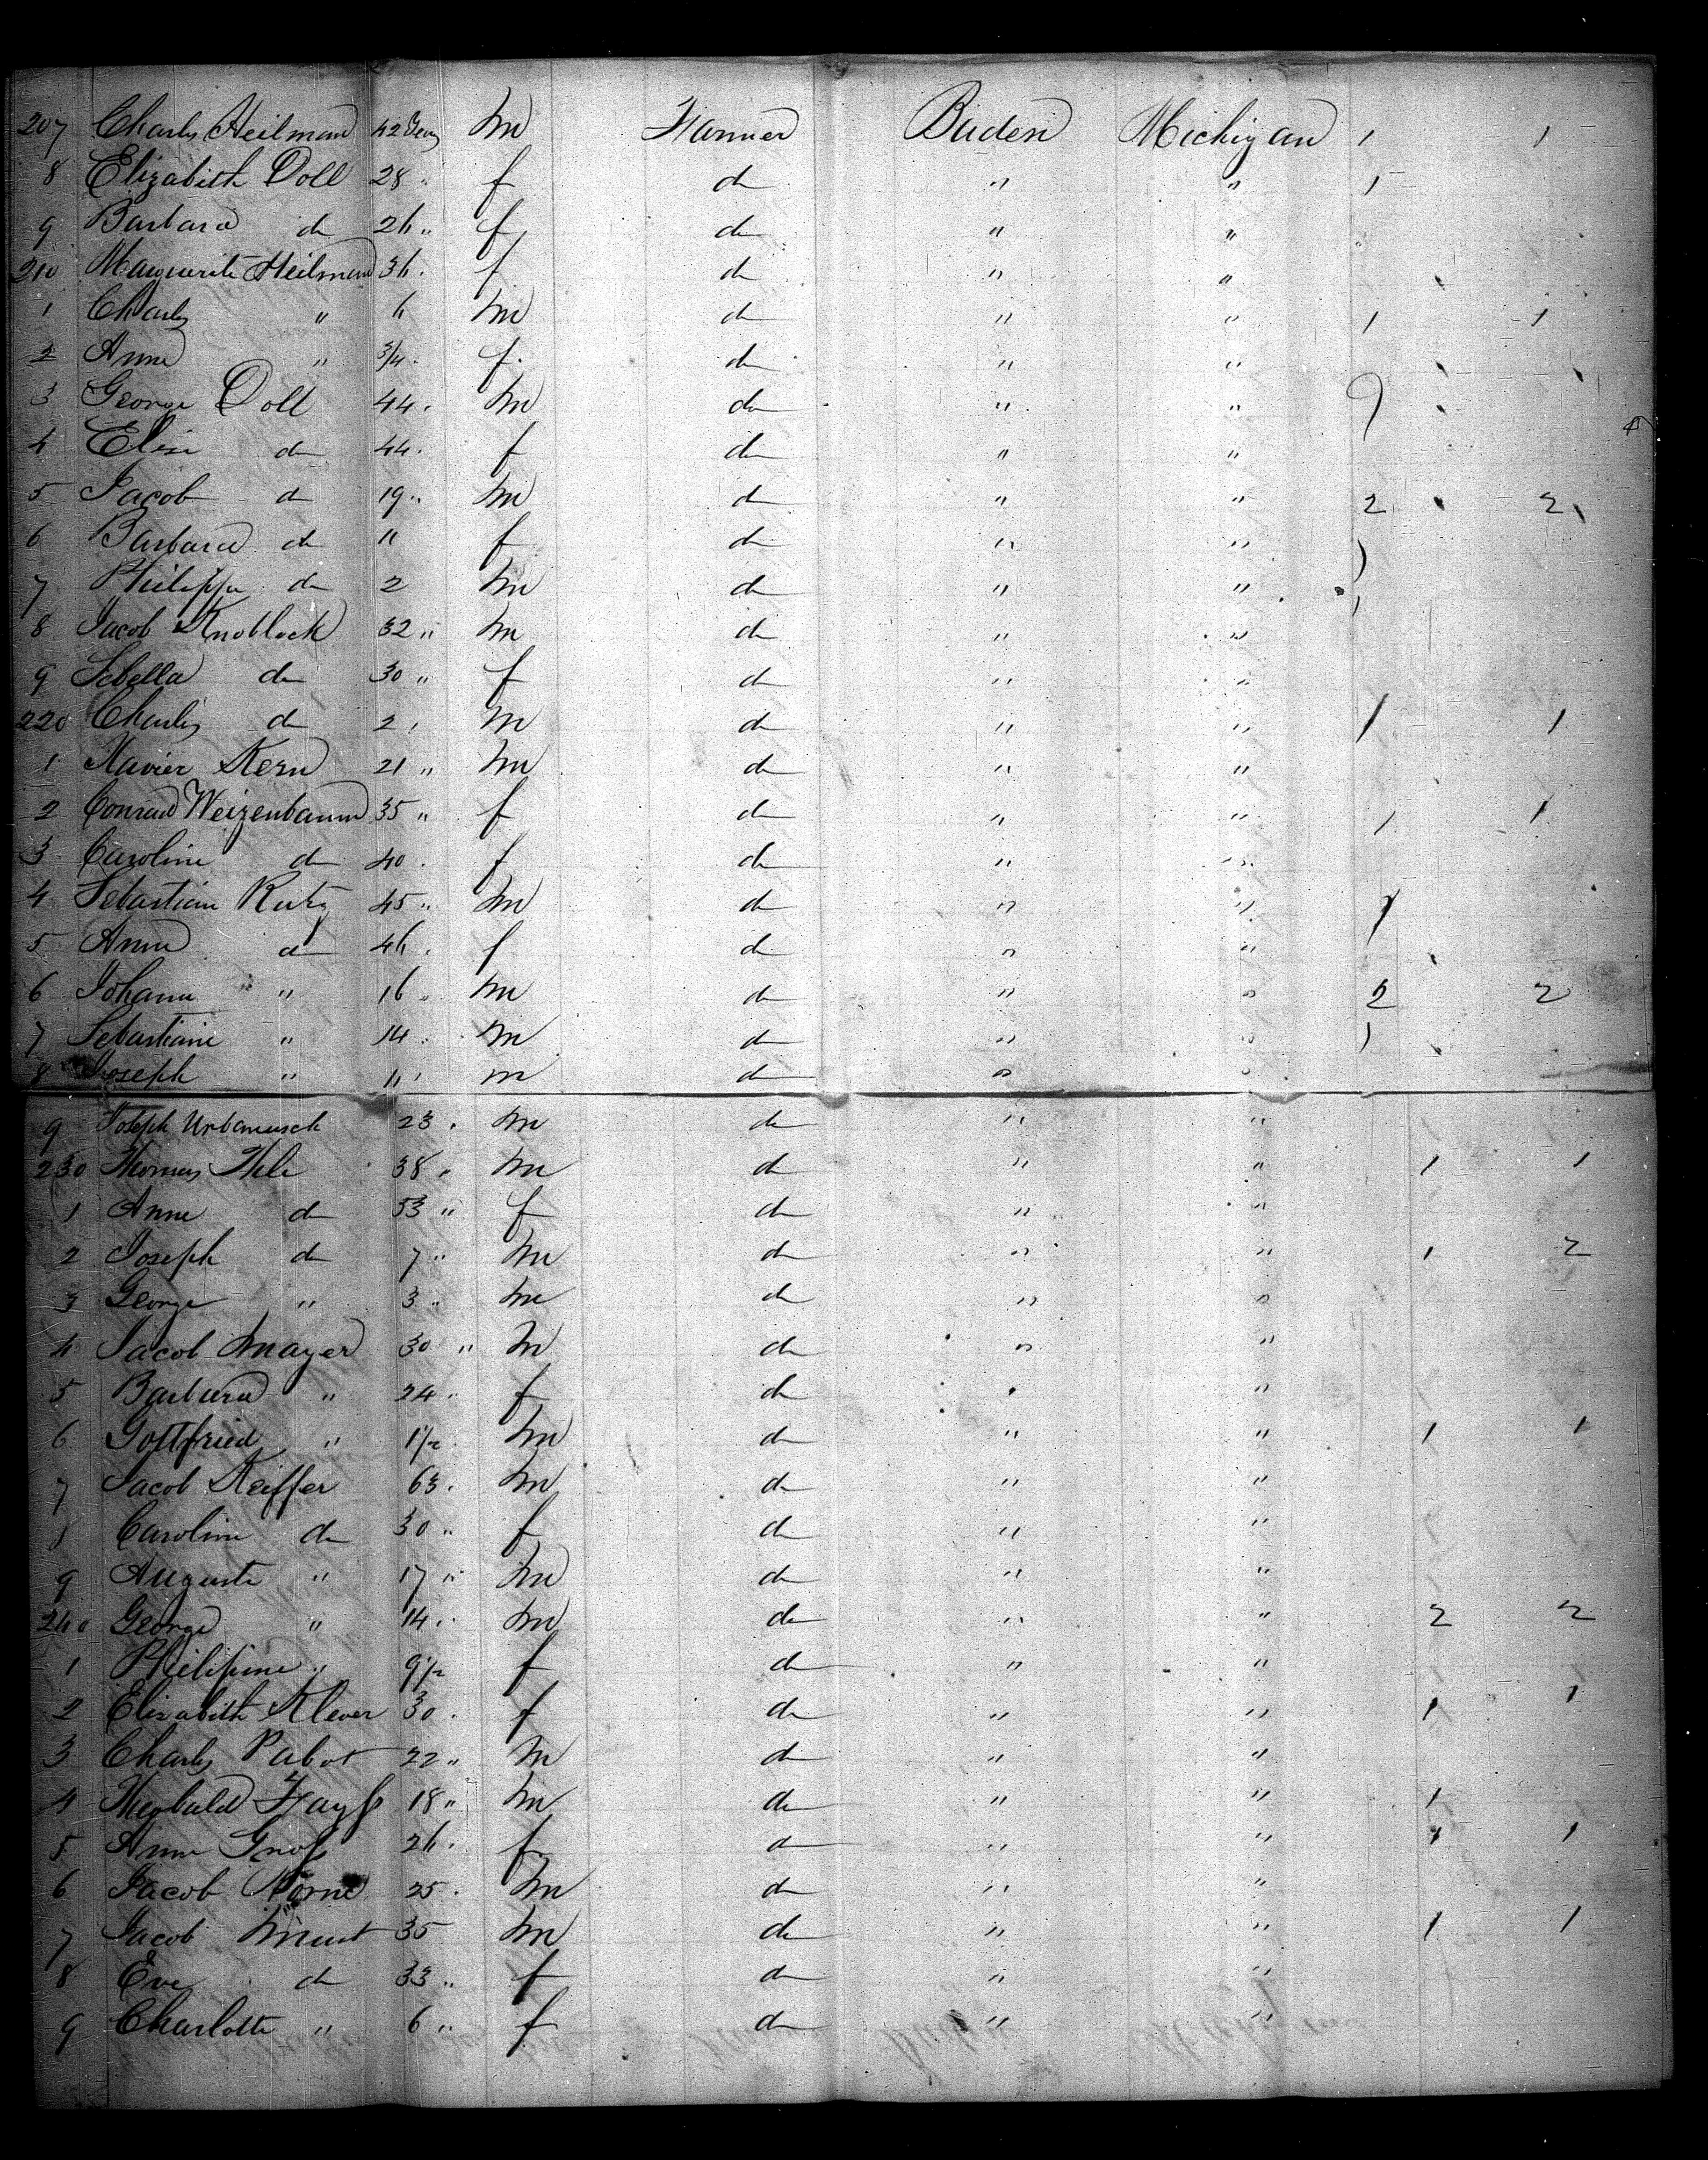 207 Charles Heilmann 42 Years m Farmer Baden Michigan 1 1
8 Elizabeth Doll 28 " f do " " 1
9 Barbara do 26 " f do " "
210 Marguerite Heilmann 36 " f do " "
1 Charles " 6 m do " " 1 1
2 Anna " 3/4 " f do " "
3 George Doll 44 " m do " "
4 Elise do 44 " f do " "
5 Jacob do 19 " m do " " 2 2
6 Barbara do 11 f do " "
7 Philippe do 2 m do " "
8 Jacob Knoblock 32 " m do " "
9 Sebella do 30 " f do " "
220 Charles do 2 " m do " " 1 1
1 Xavier Kern 21 " m do " "
2 Conrad Weizenbaum 35 " f do " " 1 1
3 Caroline do 40 " f do " "
4 Sebastian Kurz 45 " m do " " 1
5 Anna do 46 " f do " "
6 Johann " 16 " m do " " 2 2
7 Sebastiani " 14 " m do " " 1
8 Joseph " 11 " m do " "
9 Joseph 23 " m do " "
230 Thomas Ihle 38 " m do " " 1 1
1 Anna do 53 " f do " "
2 Joseph do 7 " m do " " 1 2
3 George " 3 " m do " "
4 Jacob Mayer 30 " m do " "
5 Barbara " 24 " f do " "
6 Gottfried " 1 1/2 m do " " 1 1
7 Jacob Keiffer 63 " m do " "
Caroline do 30 " f do " "
9 Auguste " 17 " m do " "
240 George " 14 " m do " " 2 2
1 Philipine " 9 1/2 f do " "
2 Elisabeth Klever 30 " f do " " 1 1
3 Charles Pabot 22 " m do " "
4 18 " m do " " 1
5 Anna Groß 26 " f do " " 1 1
6 Jacob 25 " m do " "
7 Jacob 35 m do " " 1 1
8 Eve do 33 " f do " "
9 Charlotte " 6 " f do " "